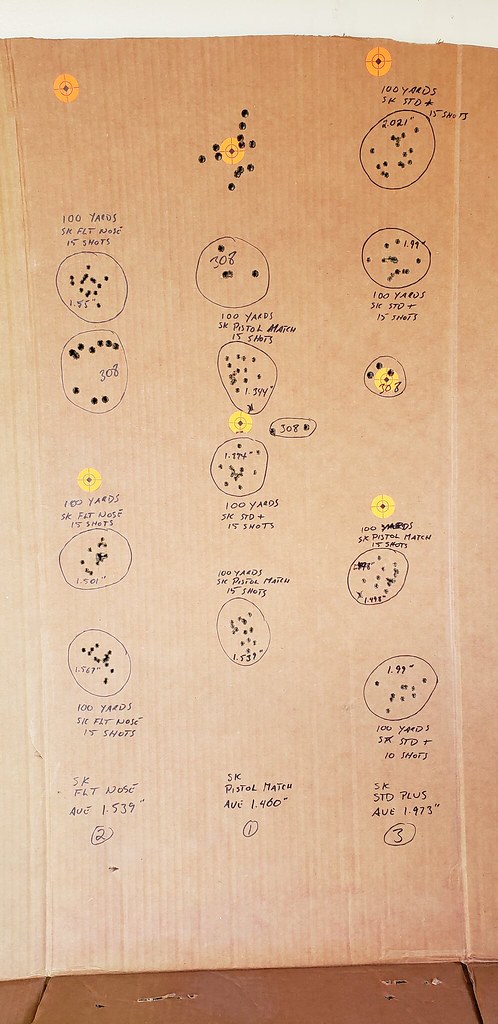 100 YARDS
SK FLT NOSE
15 SHOTS
1.55"
308
100 YARDS
SK FLT NOSE
15 SHOTS
1.501"
1.567"
100 YARDS
SK FLT NOSE
15 SHOTS
SK
FLT NOSE
AVE 1.539"
2
308
100 YARDS
SK PISTOL MATCH
15 SHOTS
1.344"
308
100 YARDS
SK STD +
15 SHOTS
100 YARDS
SK PISTOL MATCH
15 SHOTS
1.539"
SK
PISTOL MATCH
AVE 1.460"
1
100 YARDS
SK STD +
15 SHOTS
2.021"
1.99"
100 YARDS
SK STD +
15 SHOTS
308
100 YARDS
SK PISTOL MATCH
15 SHOTS
1.498"
1.99"
100 YARDS
SK STD +
10 SHOTS
SK
STD PLUS
AVE 1.973"
3